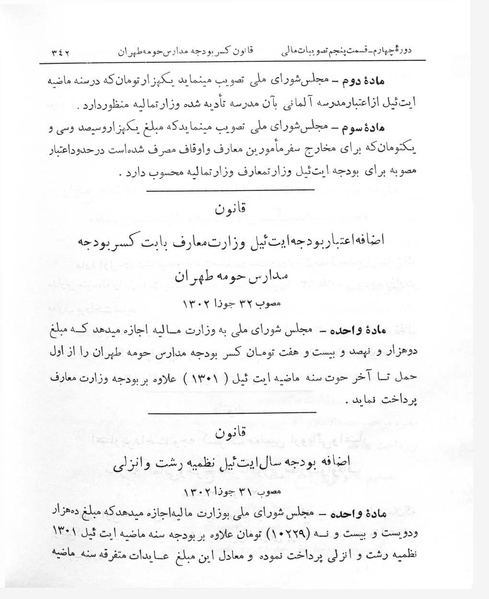 دورهٔ چهارم - قسمت پنجم تصویبات مالی قانون کسر بودجه مدارس حومه طهران ۳۴۲
مادهٔ دوم - مجلس شورای ملی تصویب مینماید یکهزار تومان که در سنه ماضیه
ایت ئیل از اعتبار مدرسه آلمانی بآن مدرسه تأدیه شده وزارت مالیه منظور دارد .
مادهٔ سوم - مجلس شورای ملی تصویب مینماید که مبلغ یکهزار و سیصد و سی و
یکتومان که برای مخارج سفر مأمورین معارف و اوقاف مصرف شده است در حدود اعتبار
مصوبه برای بودجه ایت ئیل وزارت معارف وزارت مالیه محسوب دارد .
قانون
اضافه اعتبار بودجه ایت ئیل وزارت معارف بابت کسر بودجه
مدارس حومه طهران
مصوب ۳۲ جوزا ۱۳۰۲
مادهٔ واحده - مجلس شورای ملی به وزارت مالیه اجازه میدهد که مبلغ
دوهزار و نهصد و بیست و هفت تومان کسر بودجه مدارس حومه طهران را از اول
حمل تا آخر حوت سنه ماضیه ایت ئیل ( ۱۳۰۱ ) علاوه بر بودجه وزارت معارف
پرداخت نماید .
قانون
اضافه بودجه سال ایت ئیل نظمیه رشت و انزلی
مصوب ۳۱ جوزا ۱۳۰۲
مادهٔ واحده - مجلس شورای ملی بوزارت مالیه اجازه میدهد که مبلغ ده هزار
و دویست و بیست و نه (۱۰۲۲۹) تومان علاوه بر بودجه سنه ماضیه ایت ئیل ۱۳۰۱
نظمیه رشت و انزلی پرداخت نموده و معادل این مبلغ عایدات متفرقه سنه ماضیه